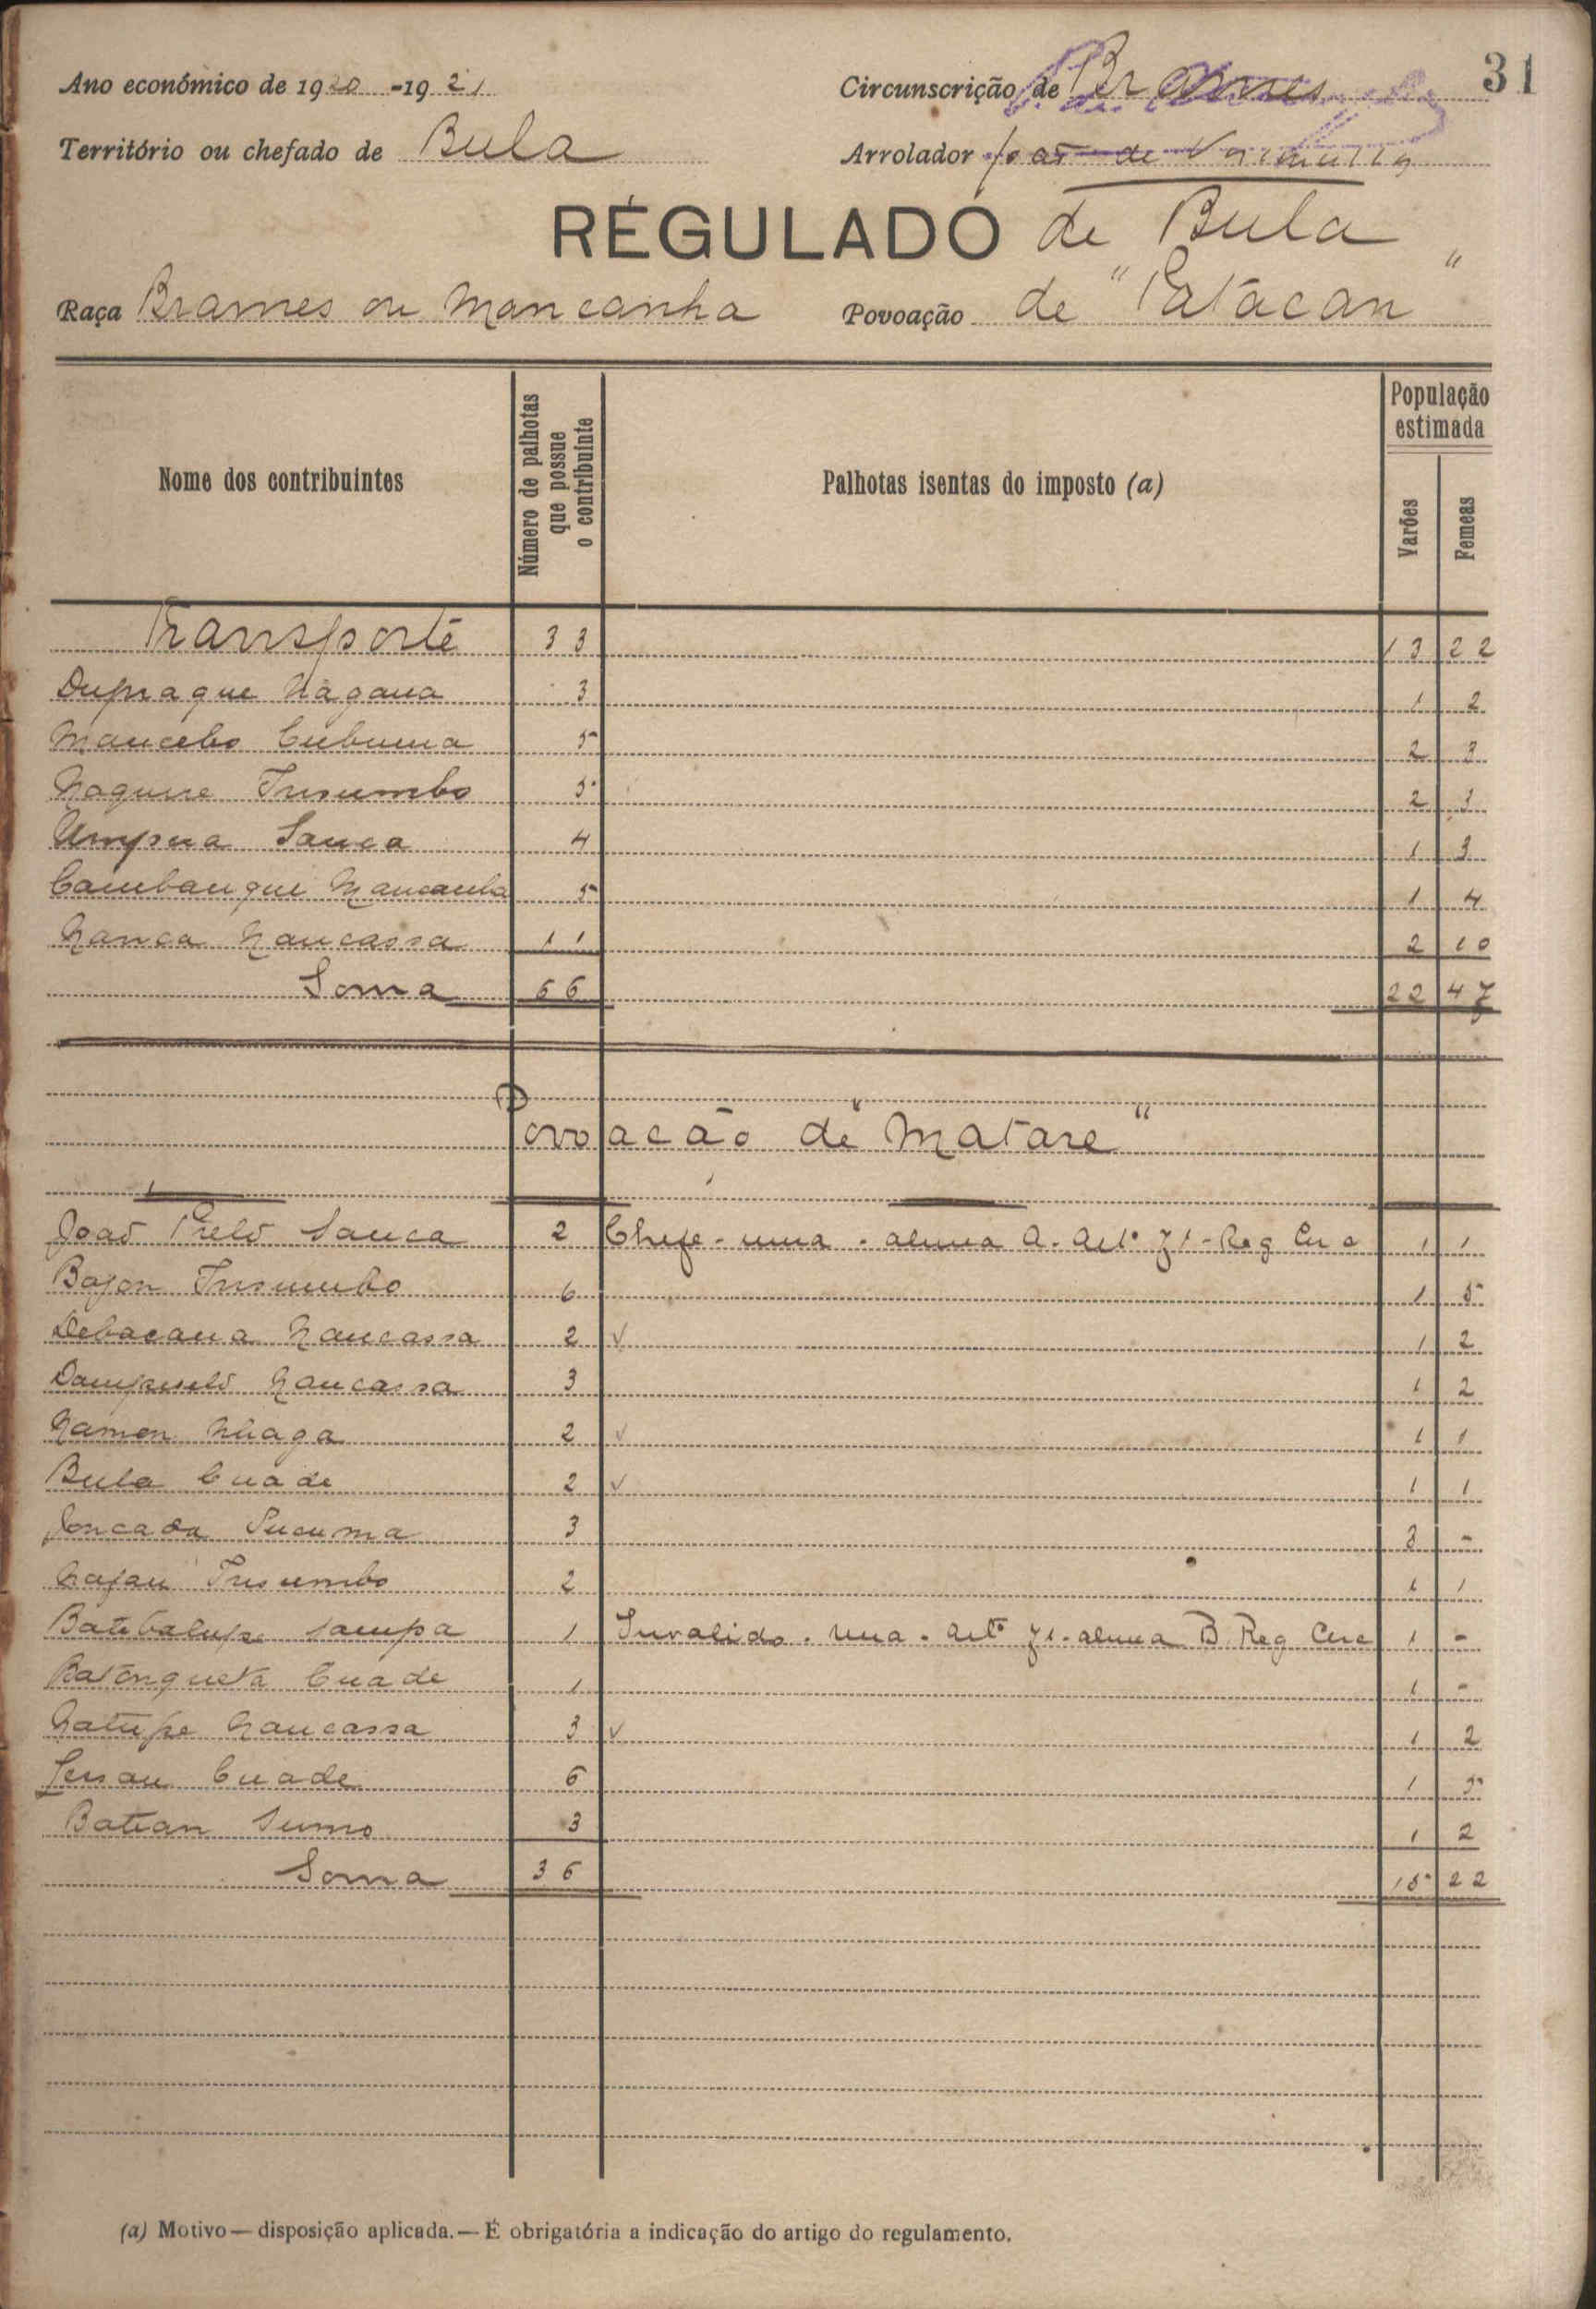 31
Ano económico de 1920-1921 Circunscrição de Brames
Território ou chefado de Bula Arrolador João de
REGULADO de Bula
Raça Brames ou Mancanha Povoação de "Patacan"
Nome dos contribuintes Número de palhotas que possue o contribuinte Palhotas isentas do imposto (a) População estimada Varões Femeas
Transporte 33 13 22
Dupraque Nagana 3 1 2
Mancebo Cubuma 5 2 3
Naguire Insumbo 5 2 3
Sanca 4 1 3
Cambanque Mancanha 5 1 4
Nanca Nancassa 11 2 10
Soma 66 22 47
Povoacão de "Matare"
João Preto Sanca 2 Chefe - uma - alinea A. Artº 71 - Reg Circ 1 1
Bajon Insumbo 6 1 5
Debacana Nancassa 2 v 1 2
Nancassa 3 1 2
Namon Nhaga 2 v 1 1
Bula Cuade 2 v 1 1
Joncada Sucuma 3 3 -
Najau Insumbo 2 1 1
Sampa 1 Invalido - uma - artº 71 - alinea B. Reg Circ 1 -
Batonqueta Cuade 1 1 -
Natupe Nancassa 3 v 1 2
Cuade 6 1 5
Batian Sumo 3 1 2
Soma 36 15 22
(a) Motivo — disposição aplicada. — É obrigatória a indicação do artigo do regulamento.